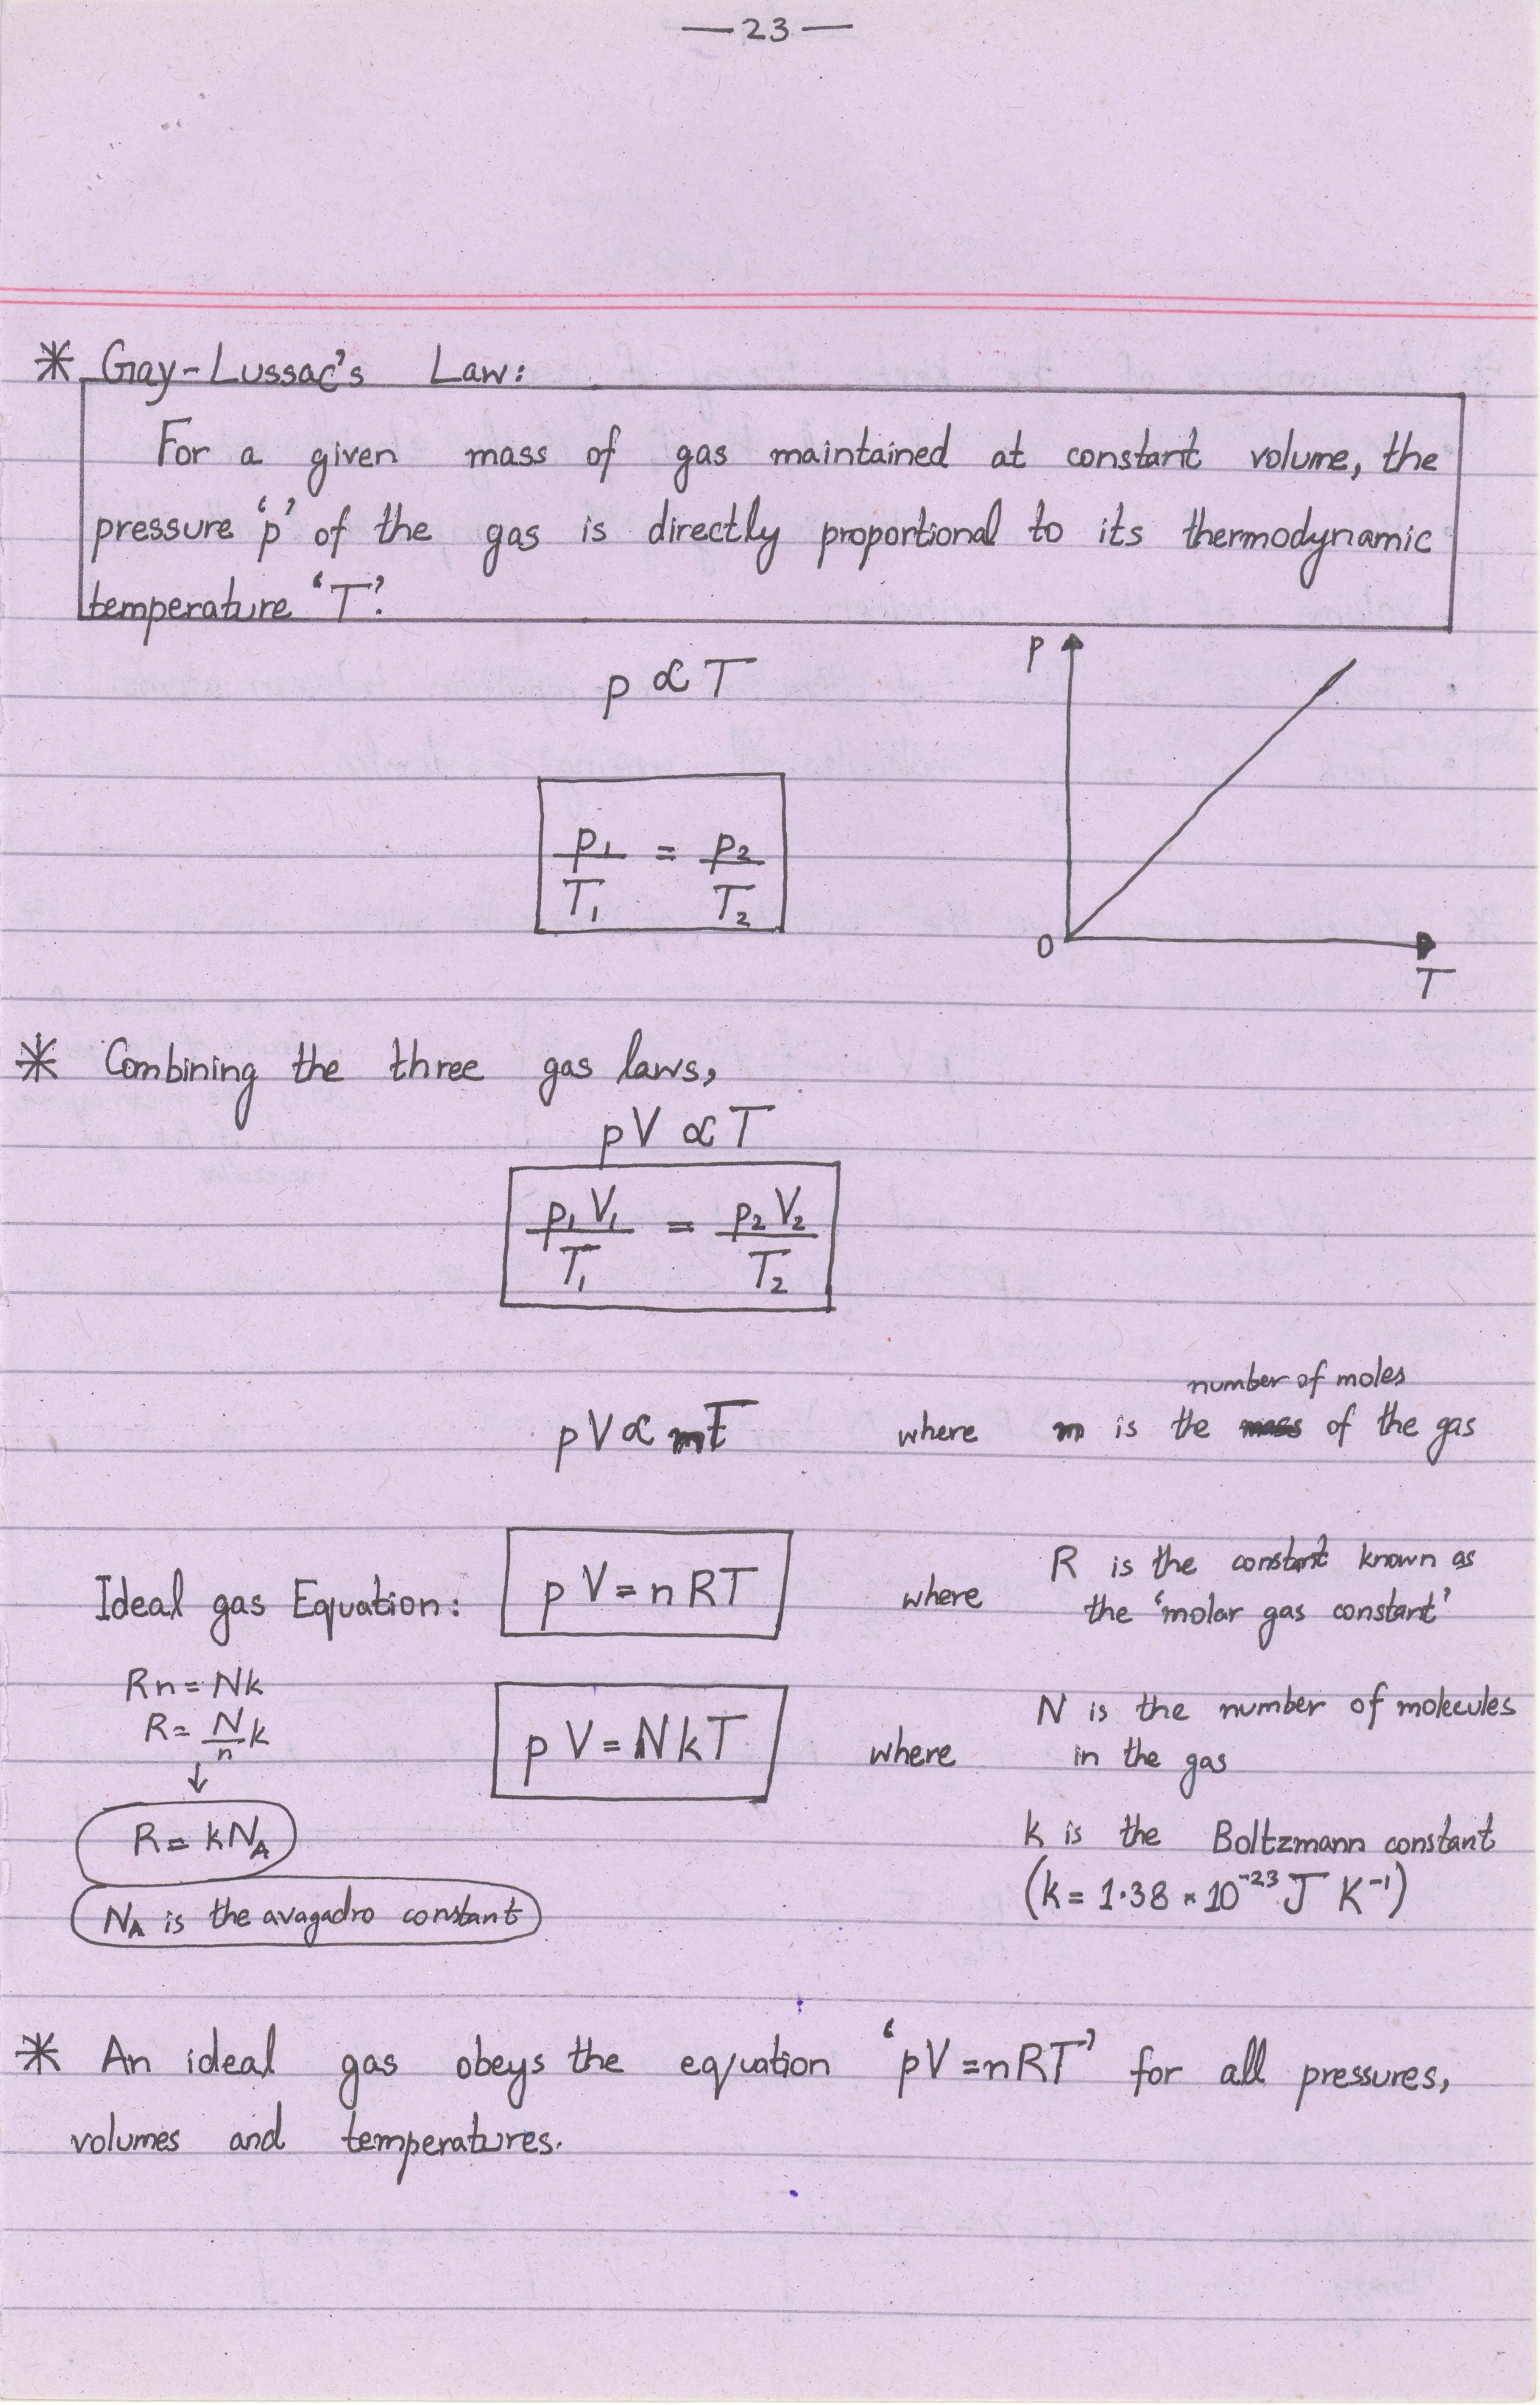 —23—
* Gay-Lussac's Law:
For a given mass of gas maintained at constant volume, the
pressure 'p' of the gas is directly proportional to its thermodynamic
temperature 'T'.
p ∝ T
p
p₁/T₁ = p₂/T₂
0
T
* Combining the three gas laws,
pV ∝ T
p₁V₁/T₁ = p₂V₂/T₂
number of moles
pV ∝ nT where n is the mass of the gas
Ideal gas Equation: pV = nRT where R is the constant known as
the 'molar gas constant'
Rn = Nk
R = N/n k
↓
R = kN_A
N_A is the avagadro constant
pV = NkT where N is the number of molecules
in the gas
k is the Boltzmann constant
(k = 1.38 × 10⁻²³ J K⁻¹)
* An ideal gas obeys the equation 'pV = nRT' for all pressures,
volumes and temperatures.